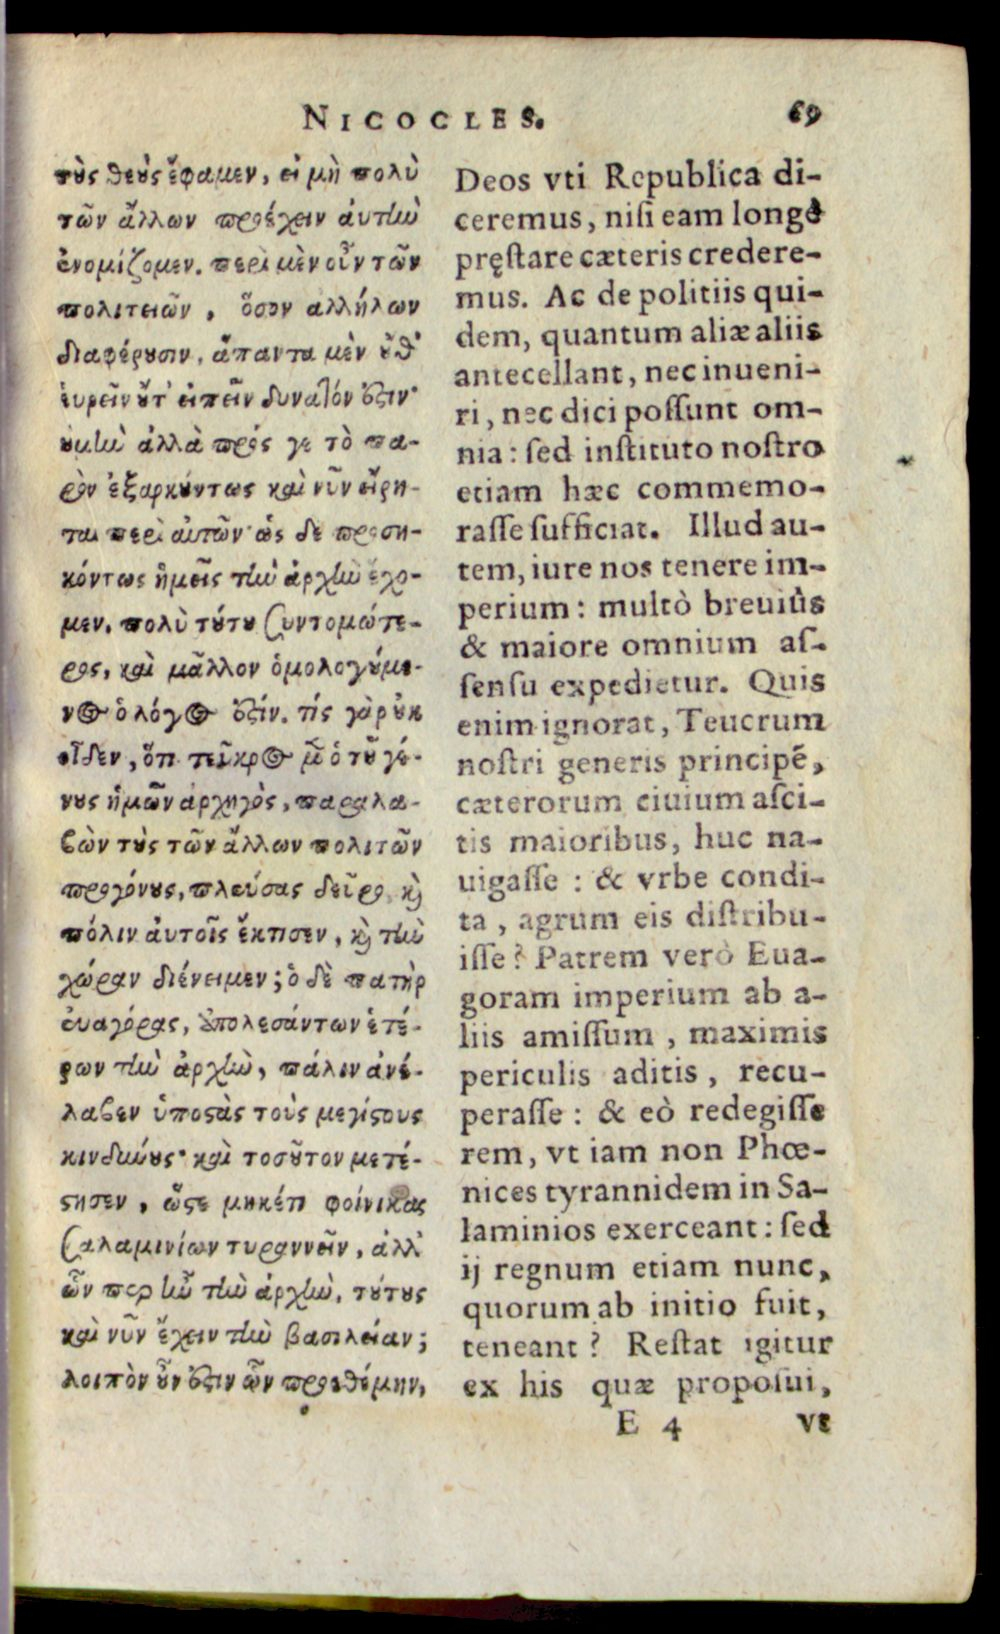 NICOCLES. 69
τοὺς θεοὺς ἔφαμεν, εἰ μὴ πολὺ
τῶν ἄλλων προέχειν αὐτὴν
ἐνομίζομεν. περὶ μὲν οὖν τῶν
πολιτειῶν, ὅσον αλλήλων
διαφέρουσιν, ἅπαντα μὲν οὔθ'
εὑρεῖν οὔτ' εἰπεῖν δυνατόν ἐστιν·
οὐμὴν ἀλλὰ πρός γε τὸ πα-
ρὸν ἐξαρκούντως καὶ νῦν εἴρη-
ται περὶ αὐτῶν· ὡς δε προση-
κόντως ἡμεῖς τὴν ἀρχὴν ἔχο-
μεν, πολὺ τούτου συντομώτε-
ρος, καὶ μᾶλλον ὁμολογούμε-
νος ὁ λόγος ἐστίν. τίς γὰρ οὐκ
οἶδεν, ὅτι τεῦκρος μὲν ὁ τοῦ γέ-
νους ἡμῶν ἀρχηγὸς, παραλα-
βὼν τοὺς τῶν ἄλλων πολιτῶν
προγόνους, πλεύσας δεῦρο, καὶ
πόλιν αὐτοῖς ἔκτισεν, καὶ τὴν
χώραν διένειμεν; ὁ δὲ πατὴρ
ευαγόρας, ἀπολεσάντων ἑτέ-
ρων τὴν ἀρχὴν, πάλιν ἀνέ-
λαβεν ὑποστὰς τοὺς μεγίστους
κινδύνους· καὶ τοσοῦτον μετέ-
στησεν, ὥστε μηκέτι φοίνικας
σαλαμινίων τυραννεῖν, ἀλλ'
ὧν περ ἦν τὴν ἀρχὴν, τούτους
καὶ νῦν ἔχειν τὴν βασιλείαν;
λοιπὸν οὖν ἐστιν ὧν προεθέμην,
Deos vti Republica di-
ceremus, nisi eam longè
pręstare cæteris credere-
mus. Ac de politiis qui-
dem, quantum aliæ aliis
antecellant, nec inueni-
ri, nec dici possunt om-
nia: sed instituto nostro
etiam hæc commemo-
rasse sufficiat. Illud au-
tem, iure nos tenere im-
perium: multò breuiùs
& maiore omnium as-
sensu expedietur. Quis
enim ignorat, Teucrum
nostri generis principẽ,
cæterorum ciuium asci-
tis maioribus, huc na-
uigasse: & vrbe condi-
ta, agrum eis distribu-
isse? Patrem verò Eua-
goram imperium ab a-
liis amissum, maximis
periculis aditis, recu-
perasse: & eò redegisse
rem, vt iam non Phœ-
nices tyrannidem in Sa-
laminios exerceant: sed
ij regnum etiam nunc,
quorum ab initio fuit,
teneant? Restat igitur
ex his quæ proposui,
E 4 vt